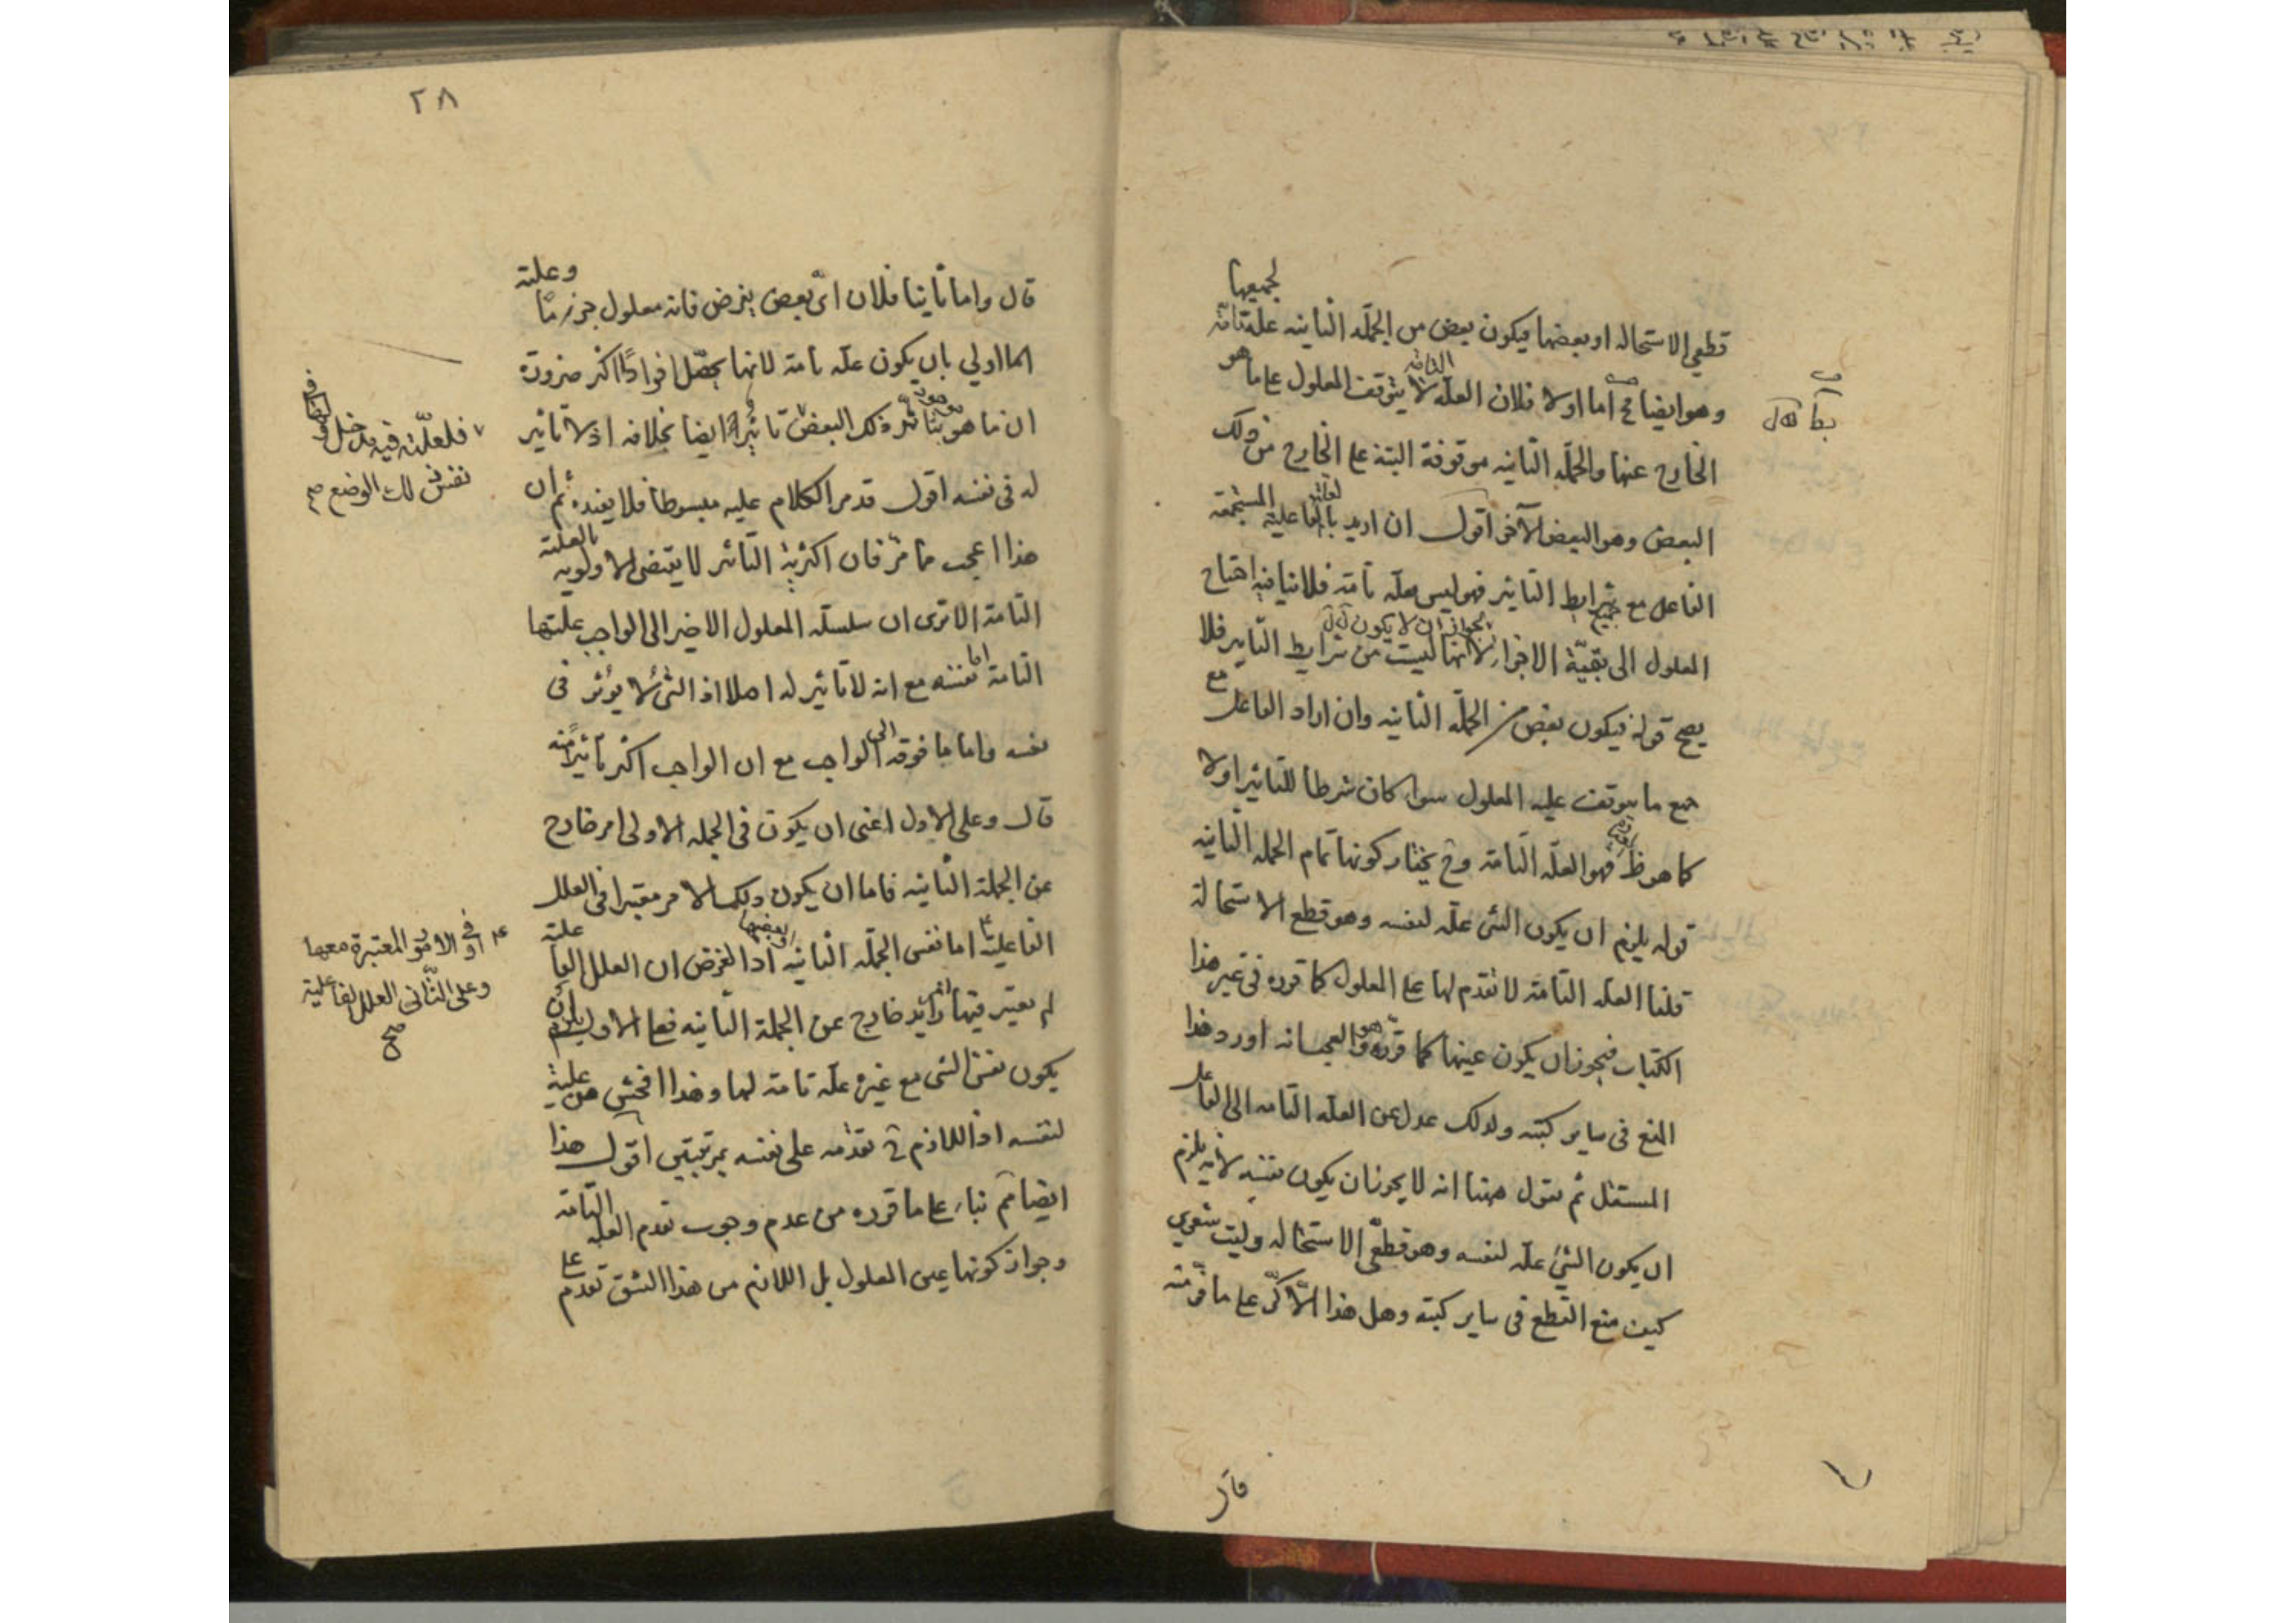 لجميعها
قطعي الاستحاله او بعضها فيكون بعض من الجملة الثانيه علة تامة
وهو ايضا مح اما اولا فلان العلة التامة لا يتوقف المعلول على ما هو
الخارج عنها والجملة الثانيه موقوفة البتة على الخارج من ذلك
البعض وهو البعض الآخر اقول ان اريد بالفاعلية المستجمعة
الفاعل مع جميع شرايط التاثير فهو ليس علة تامة فلا ينافيه احتياج
المعلول الى بقية الاجزاء لجواز ان لا يكون لانها ليست من شرايط التاثير فلا
يصح قوله فيكون بعض من الجملة الثانيه وان اراد الفاعل مع
جميع ما يتوقف عليه المعلول سواء كان شرطا للتاثير اولا
كما هو ظ فهو العلة التامة وح يختار كونها تمام الجملة الثانيه
قوله يلزم ان يكون الشئ علة لنفسه وهو قطع الاستحالة
قلنا العلة التامة لا تقدم لها على المعلول كما قرره في غير هذا
الكتاب فيجوز ان يكون عينها كما قرره هو والعجب انه اورد هذا
المنع في ساير كتبه ولذلك عدل عن العلة التامه الى الفاعل
المستقل ثم يقول ههنا انه لا يجوز ان يكون نفسه لانه يلزم
ان يكون الشئ علة لنفسه وهو قطعي الاستحاله وليت شعري
كيف منع القطع في ساير كتبه وهل هذا الا كر على ما فر منه
قال
٢٨
قال واما ثانيا فلان اي بعض يفرض فانه معلول جزء ما وعلته
اولي بان يكون علة تامة لانها تحصل افرادا اكثر ضرورة
ان ما هو بتاثير ذلك البعض تاثيرا ايضا بخلافه اذ لا تاثير
له في نفسه اقول قد مر الكلام عليه مبسوطا فلا يفيده ثم ان
هذا اعجب مما مر فان اكثرية التاثير لا يقتضي الاولويه بالعلية
التامة الا ترى ان سلسلة المعلول الاخير الى الواجب علتها
التامة اما نفسه مع انه لا تاثير له اصلا اذ الشئ لا يؤثر في
نفسه واما ما فوقه الى الواجب مع ان الواجب اكثر تاثيرا منه
قال وعلى الاول اعني ان يكون في الجملة الاولى امر خارج
عن الجملة الثانيه فاما ان يكون ذلك الامر معتبرا في العلل
الفاعلية اما نفس الجملة الثانيه او بعضها اذ الفرض ان العلل الفاعلية
لم يعتبر فيها امر زايد خارج عن الجملة الثانيه فعلى الاول يلزم ان
يكون نفس الشئ مع غيره علة تامة لها وهذا افحش من علية
لنفسه اذ اللازم ح تقدمه على نفسه بمرتبتين اقول هذا
ايضا ثم بناء على ما قرره من عدم وجوب تقدم العلة التامة
وجواز كونها عين المعلول بل اللازم من هذا الشق تقدم على
فلعلته فيه مدخل
نفس ذلك الوضع صح
او في الامور المعتبرة معها
وعلى الثاني العلل الفاعلية
صح